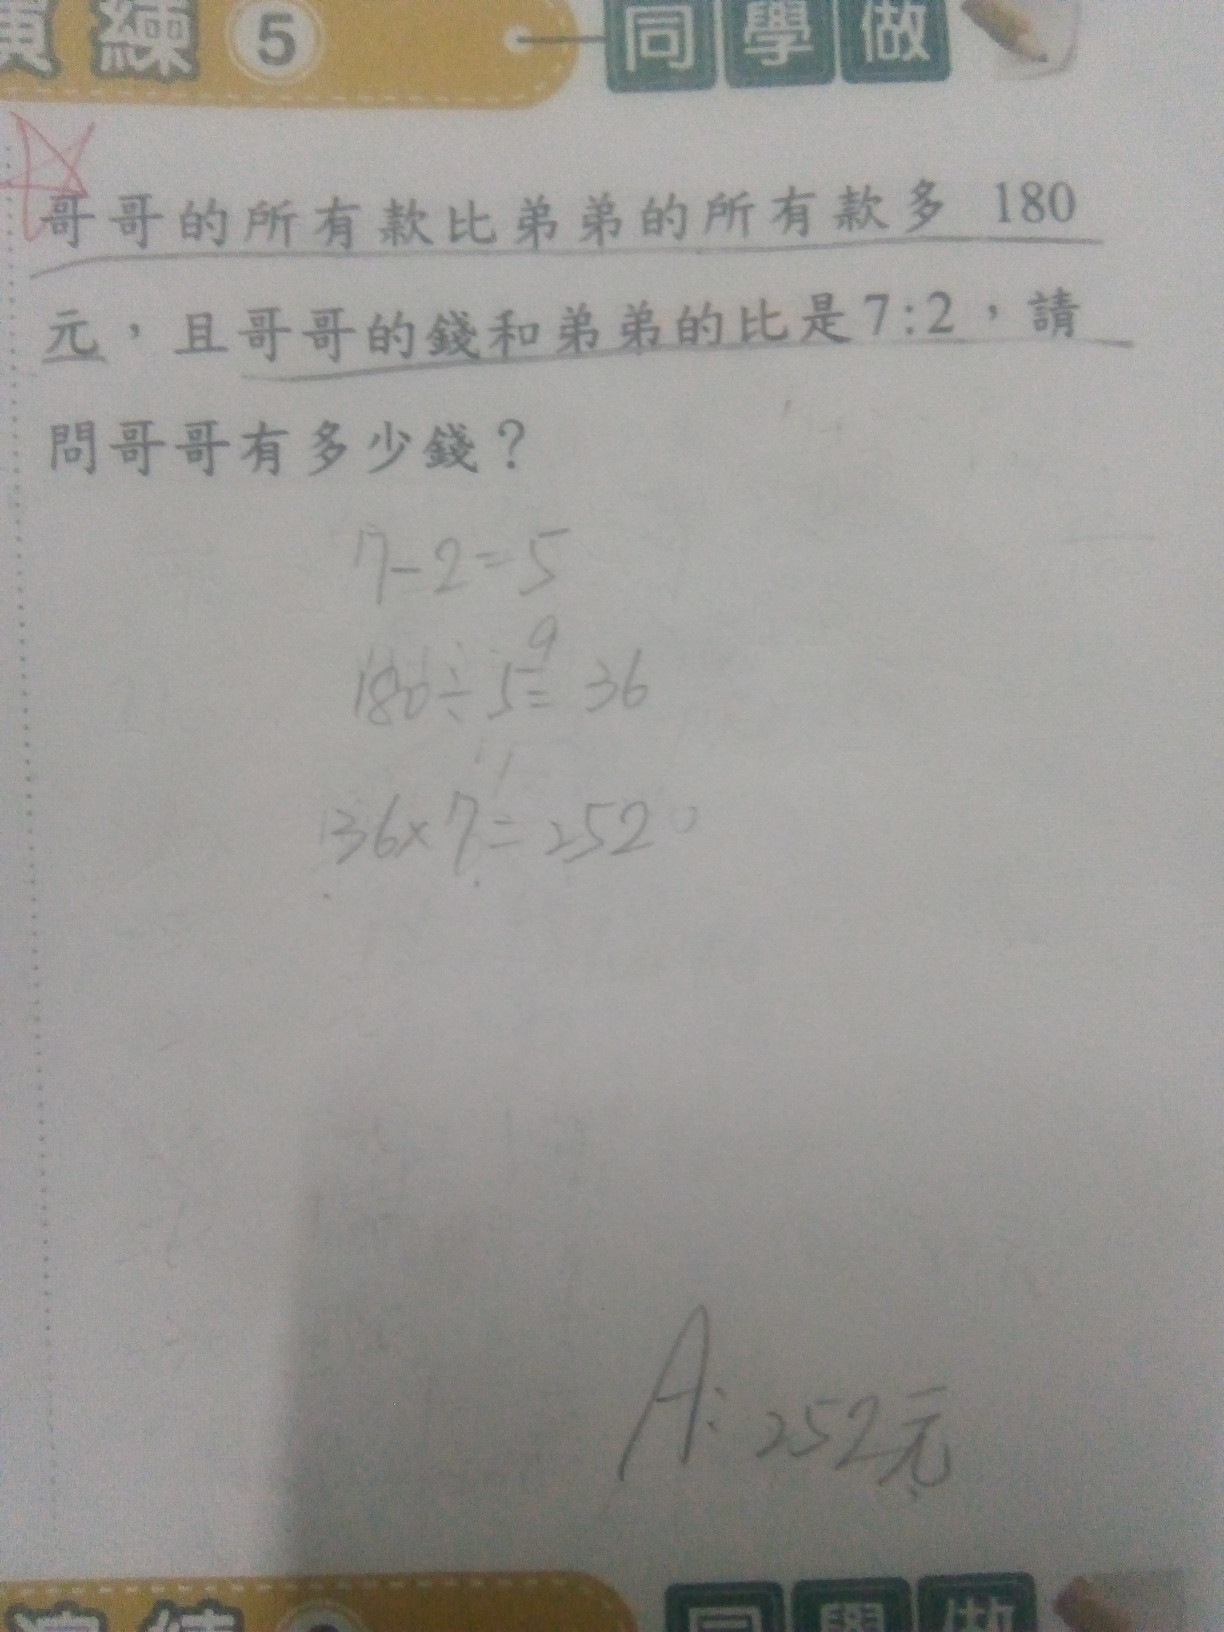 演練 5 同學做
哥哥的所有款比弟弟的所有款多 180
元，且哥哥的錢和弟弟的比是7:2，請
問哥哥有多少錢？
7-2=5
180÷5=36
36×7=252
A: 252元
演練 同學做